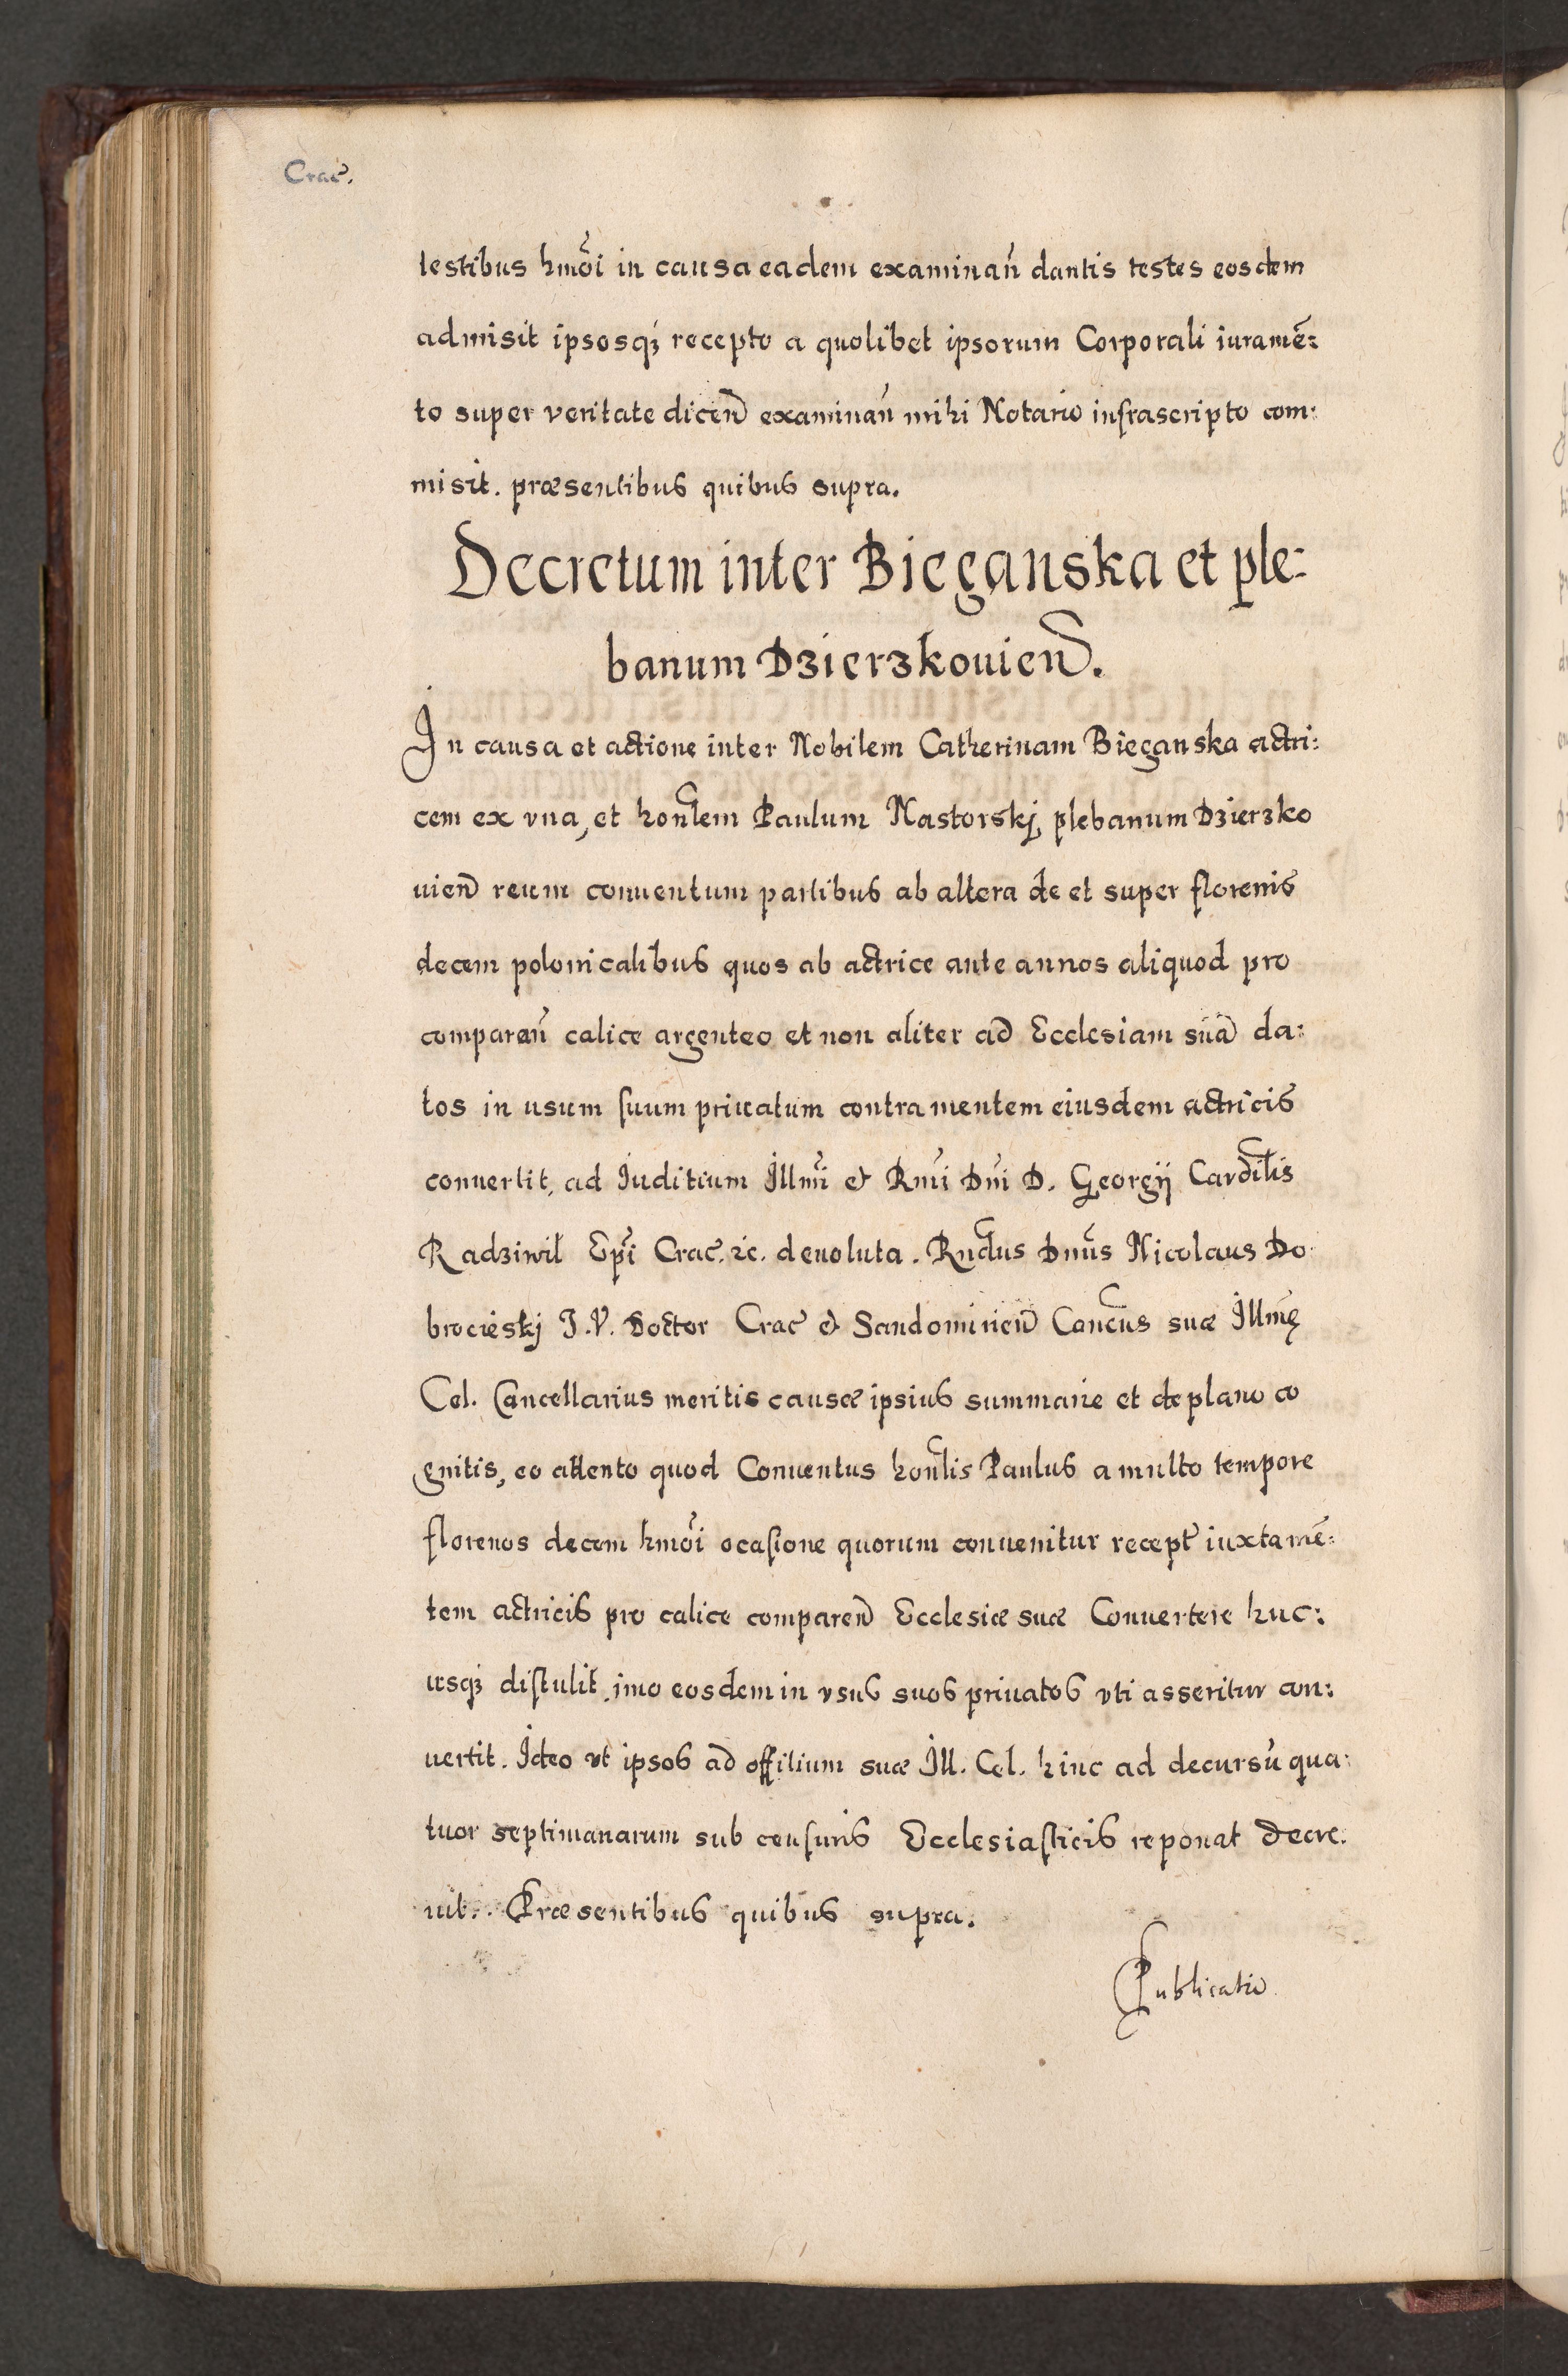 Crac̃.
testibus hmõi in causa eadem examinañ dantis testes eosdem
admisit ipsosqꝫ recepto a quolibet ipsorum Corporali iuramẽ:
to super veritate diceñ examinañ mihi Notario infrascripto com:
misit. præsentibus quibus supra.
Decretum inter Bieganska et ple:
banum Dzierzkouieñ.
In causa et actione inter Nobilem Catherinam Bieganska actri:
cem ex vna, et honl̃em Paulum Nastorskj, plebanum Dzierzko
uieñ reum conuentum partibus ab altera de et super florenis
decem polonicalibus quos ab actrice ante annos aliquod pro
comparañ calice argenteo et non aliter ad Ecclesiam suã da:
tos in usum suum priuatum contra mentem eiusdem actricis
conuertit, ad Iuditium Illm̃i et Rm̃i Dñi D. Georgij Cardĩlis
Radziwił Ep̃i Crac̃. ꝛc. deuoluta. Rñdus Dnũs Nicolaus Do
brocieskj I.V. Doctor Crac̃ et Sandomirieñ Canc̃us suæ Illmę̃
Cel. Cancellarius meritis causæ ipsius summarie et de plano co
gnitis, eo attento quod Conuentus honl̃is Paulus a multo tempore
florenos decem hmõi ocasione quorum conuenitur recept̃ iuxta mẽ:
tem actricis pro calice compareñ Ecclesiæ suæ Conuertere huc:
usqꝫ distulit, imo eosdem in vsus suos priuatos vti asseritur con:
uertit. Ideo vt ipsos ad offitium suæ Ill. Cel. hinc ad decursũ qua:
tuor septimanarum sub censuris Ecclesiasticis reponat decre:
uit. Præsentibus quibus supra.
Publicatio